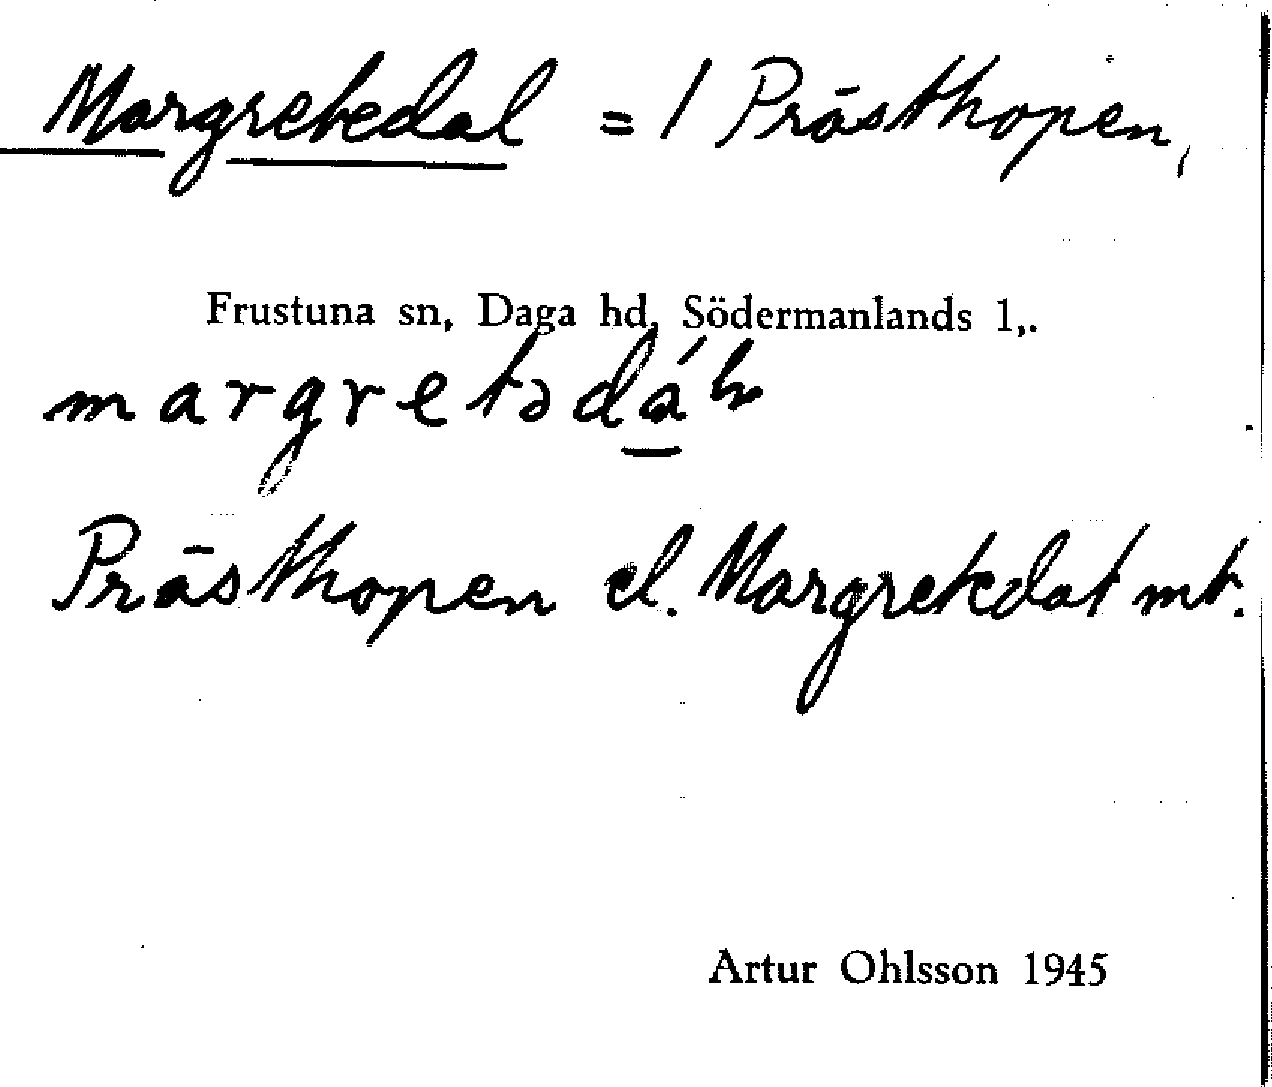 Margretedal = / Prästhopen,
Frustuna sn, Daga hd, Södermanlands l,.
margretədá̱l
Prästhopen el. Margretedal mt.
Artur Ohlsson 1945